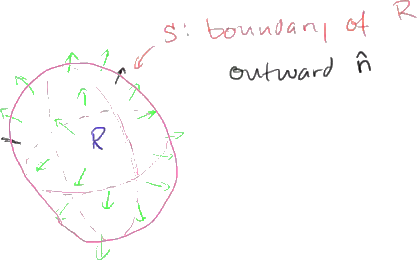 S: boundary of R
outward n̂
R